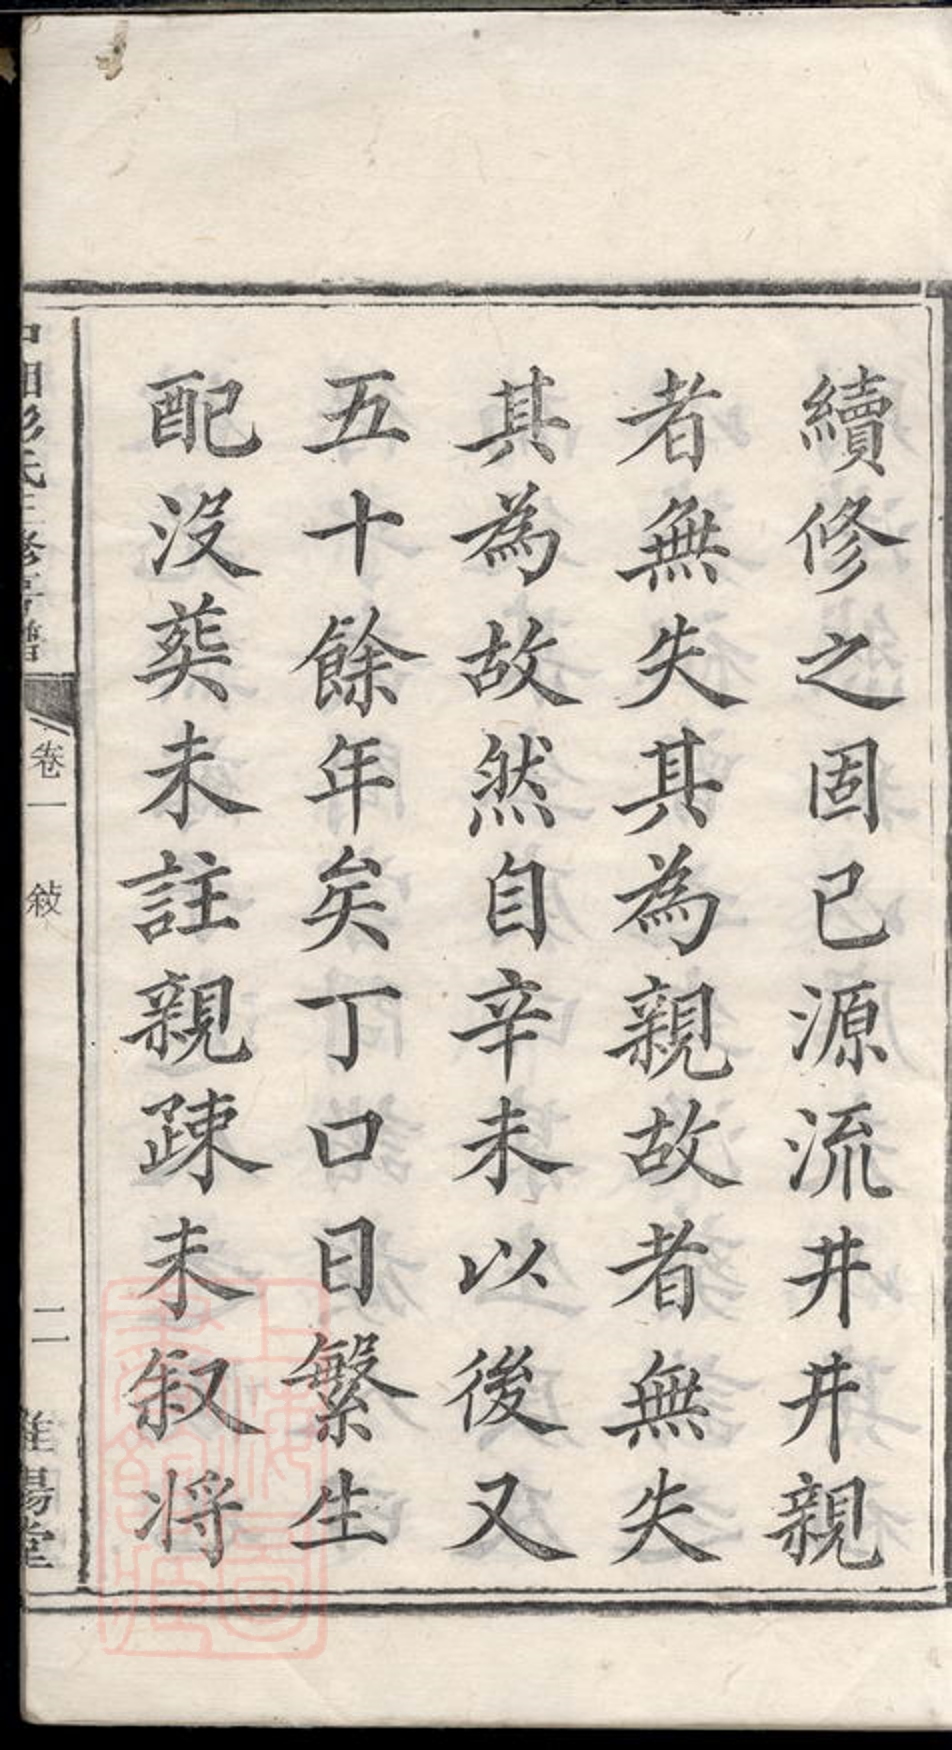 續修之固已源流井井親
者無失其為親故者無失
其為故然自辛未以後又
五十餘年矣丁口日繁生
配没葬未註親疎未叙将
卷一 敍
二